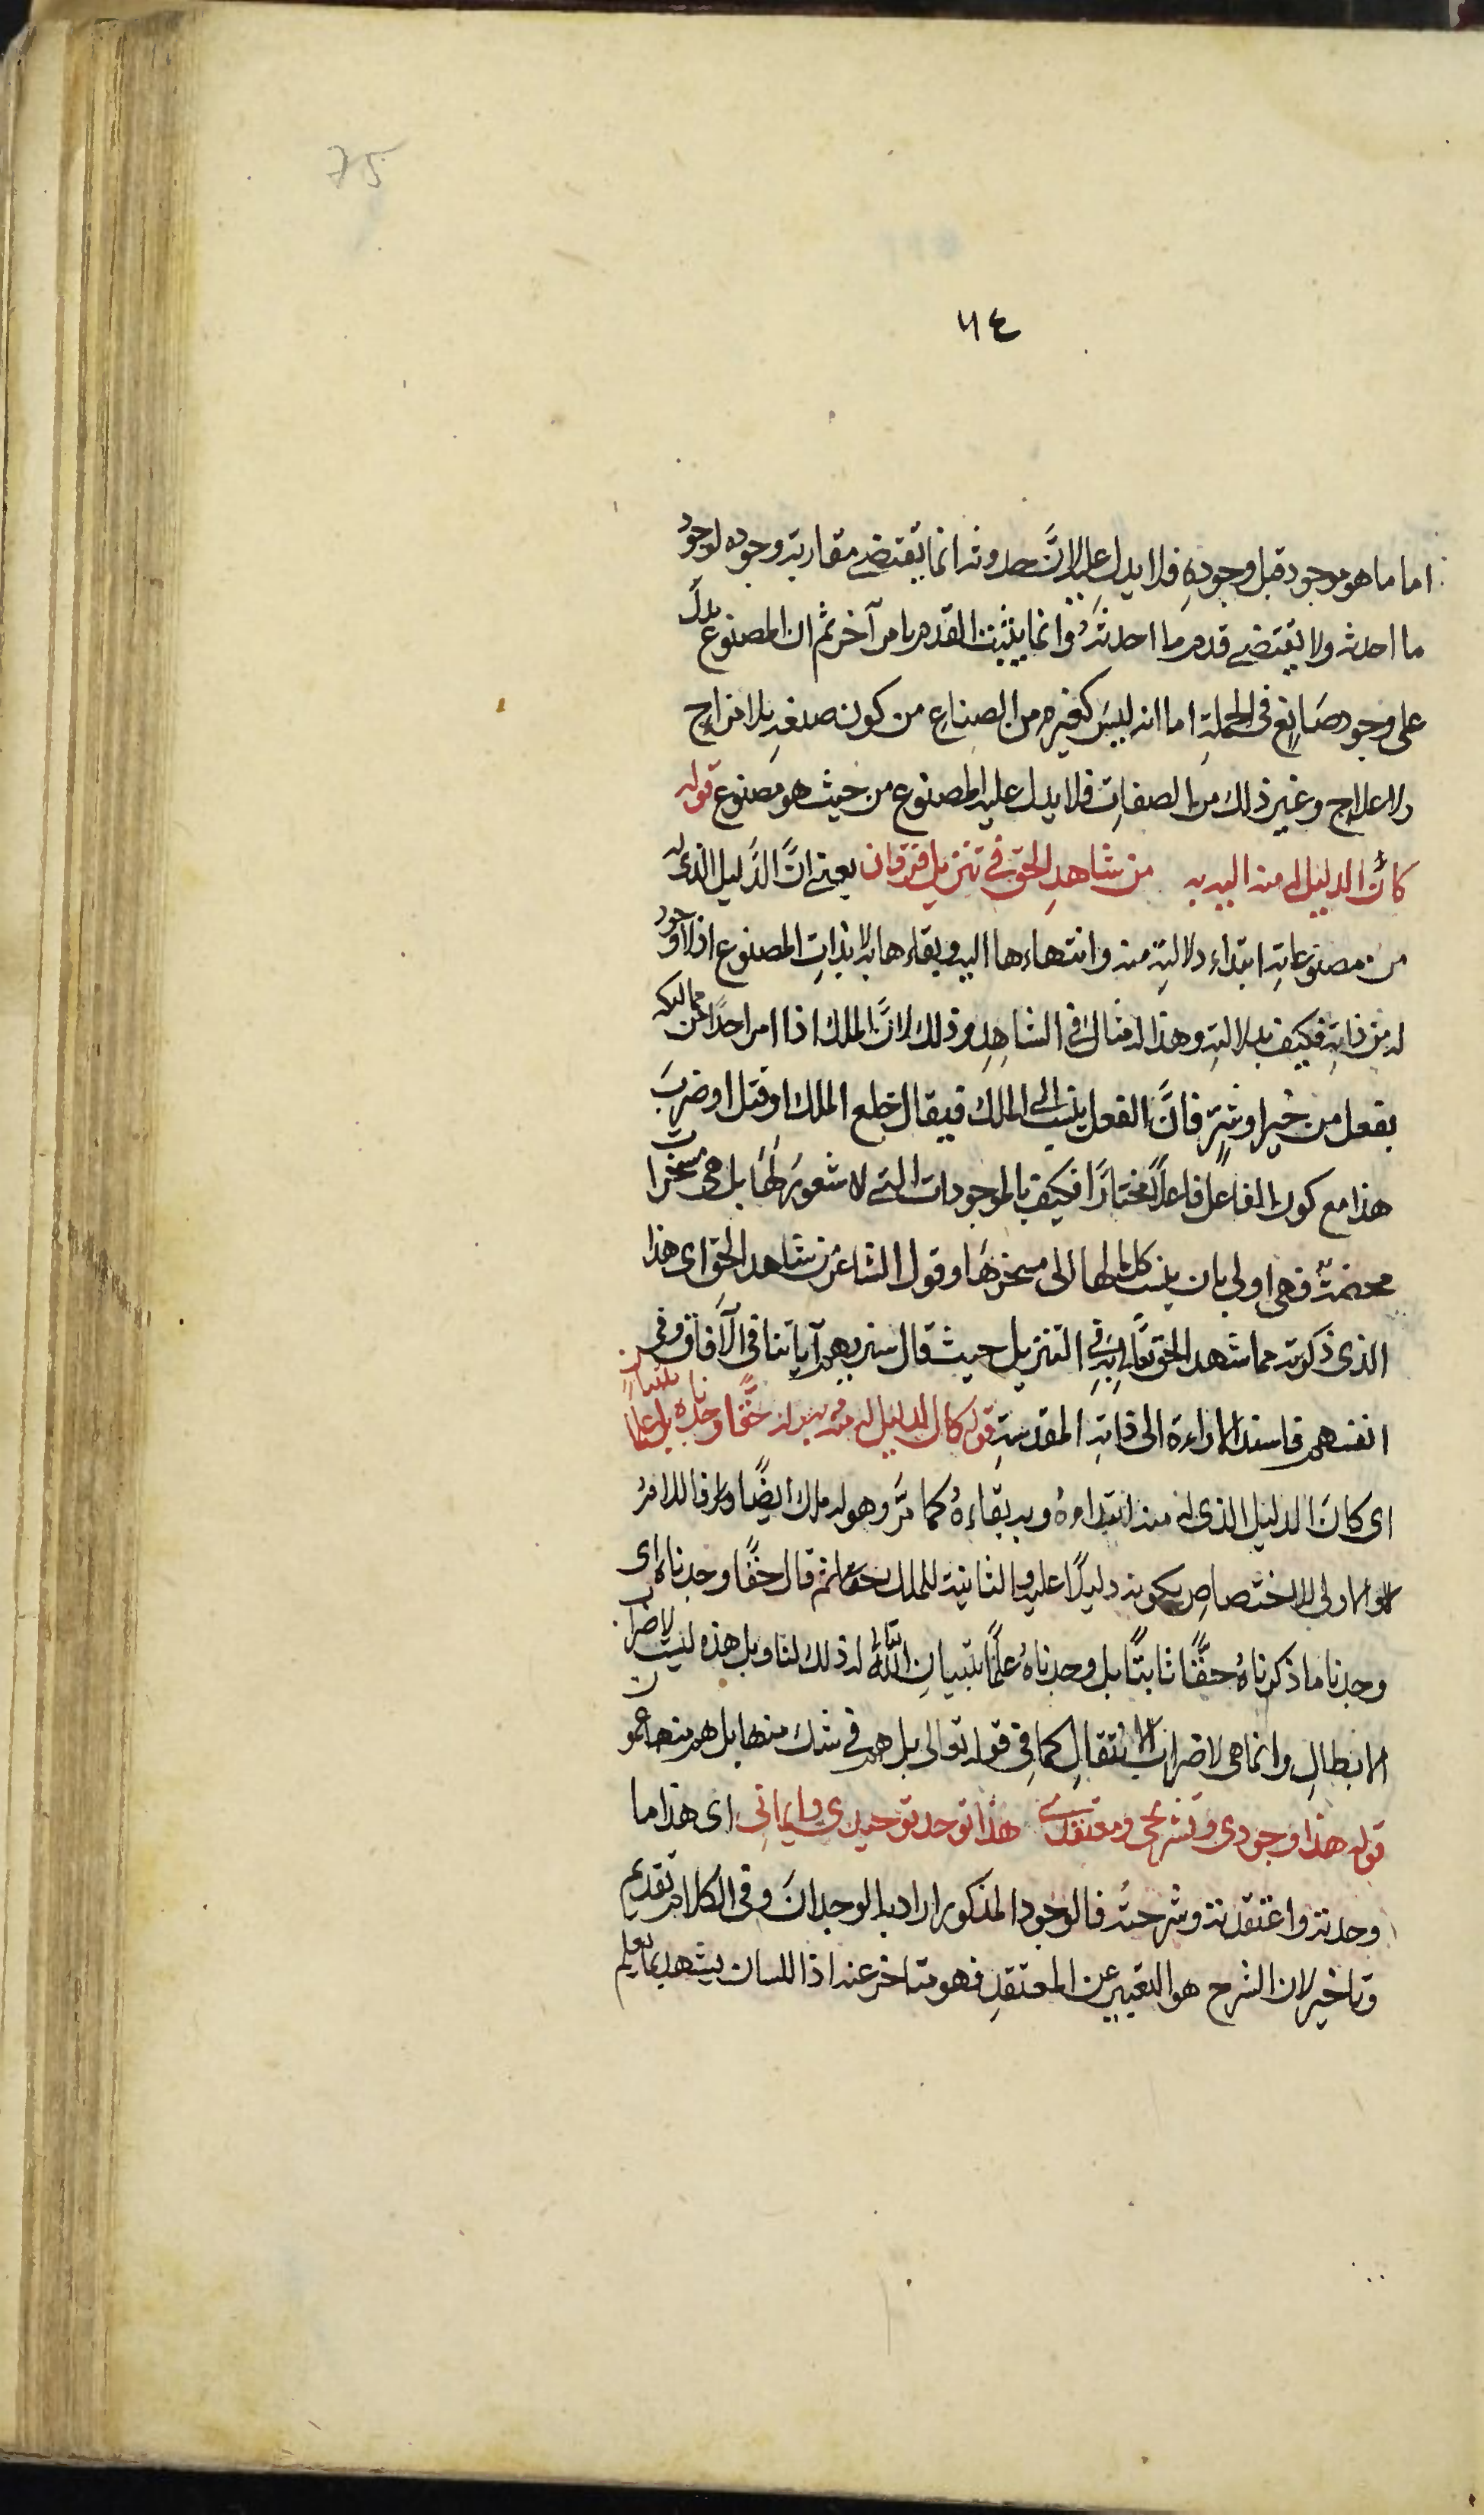 75
٧٤
اما ما هو موجود قبل وجودِهِ فلا يدل عليه لانَّ حدوثه انما يقتضى مقارنة وجوده لوجود
ما احدثه ولا يقتضى قدم ما احدثهُ وانما يثبت القدم بامر آخر ثم ان المصنوع يدل
على وجود صَانِع فى الجملةِ اما انه ليسَ كغيره من الصناع من كون صنعهِ بلا مزاج
ولا علاج وغير ذلك من الصفاتِ فلا يدل عليه المصنوع من حيث هو مصنوع قوله
كانَ الدليل له منه اليه به من شاهدِ الحق فى تنزيل فرقان يعنى انَّ الدَّليل الذى له
من مصنوعاتهِ ابتداء دلالتهِ منه وانتهاءها اليه وبقاءها به لا بذاتِ المصنوع اذ لا وجود
له من ذاتهِ فكيف بدلالتهِ وهذا له مثال فى الشاهِدِ وذلك لانَّ الملك اذا امر احدًا من مماليكه
بفعل من خير او شرٍّ فانَّ الفعل ينسب الى الملك فيقال خلع الملك او قتل او ضربَ
هذا مع كون الفاعل فاعلًا مختارًا فكيف بالموجودات التى لا شعورَ لهَا بل هى مسخرات
محضةٌ فهى اولى بان ينسب كلما لها الى مسخرهَا وقول الشاعر من شاهد الحق اى هذا
الذى ذكرته مما شهد الحق تعالى بهِ فى التنزيل حيث قال سنريهم آياتنا فى الآفاق وفى
انفسهم فاسند الاراءة الى ذاتهِ المقدسةِ قوله كان الدليل له منه به وله حقًّا وجدناه بل علمًا بتبيانٍ
اى كانَ الدليل الذى له منه ابتداءهُ وبه بقاءهُ كما مَرَّ وهو له ملك ايضًا فاللامُ
الاولى للاختصاصِ بكونه دليلًا عليه والثانية للملك ثم قال حقًّا وجدناه اى
وجدنا ما ذكرناهُ حقًّا ثابتًا بل وجدناهُ علمًا بتبيانِ اللهِ تعالى له ذلك لنا وبل هذه ليست لاضراب
الابطالِ وانما هى لاضراب الانتقالِ كما فى قوله تعالى بل هم فى شك منها بل هم منها عمون
قوله هذا وجودى وتشريحى ومعتقدى هذا توحد توحيدى وايمانى اى هذا ما
وجدته واعتقدته وشرحتُه فالوجود المذكور اراد به الوجدانَ وفى الكلام تقديم
وتاخير لان الشرح هو التعبير عن المعتقدِ فهو متاخر عنه اذ اللسان يشهد بما يعلم